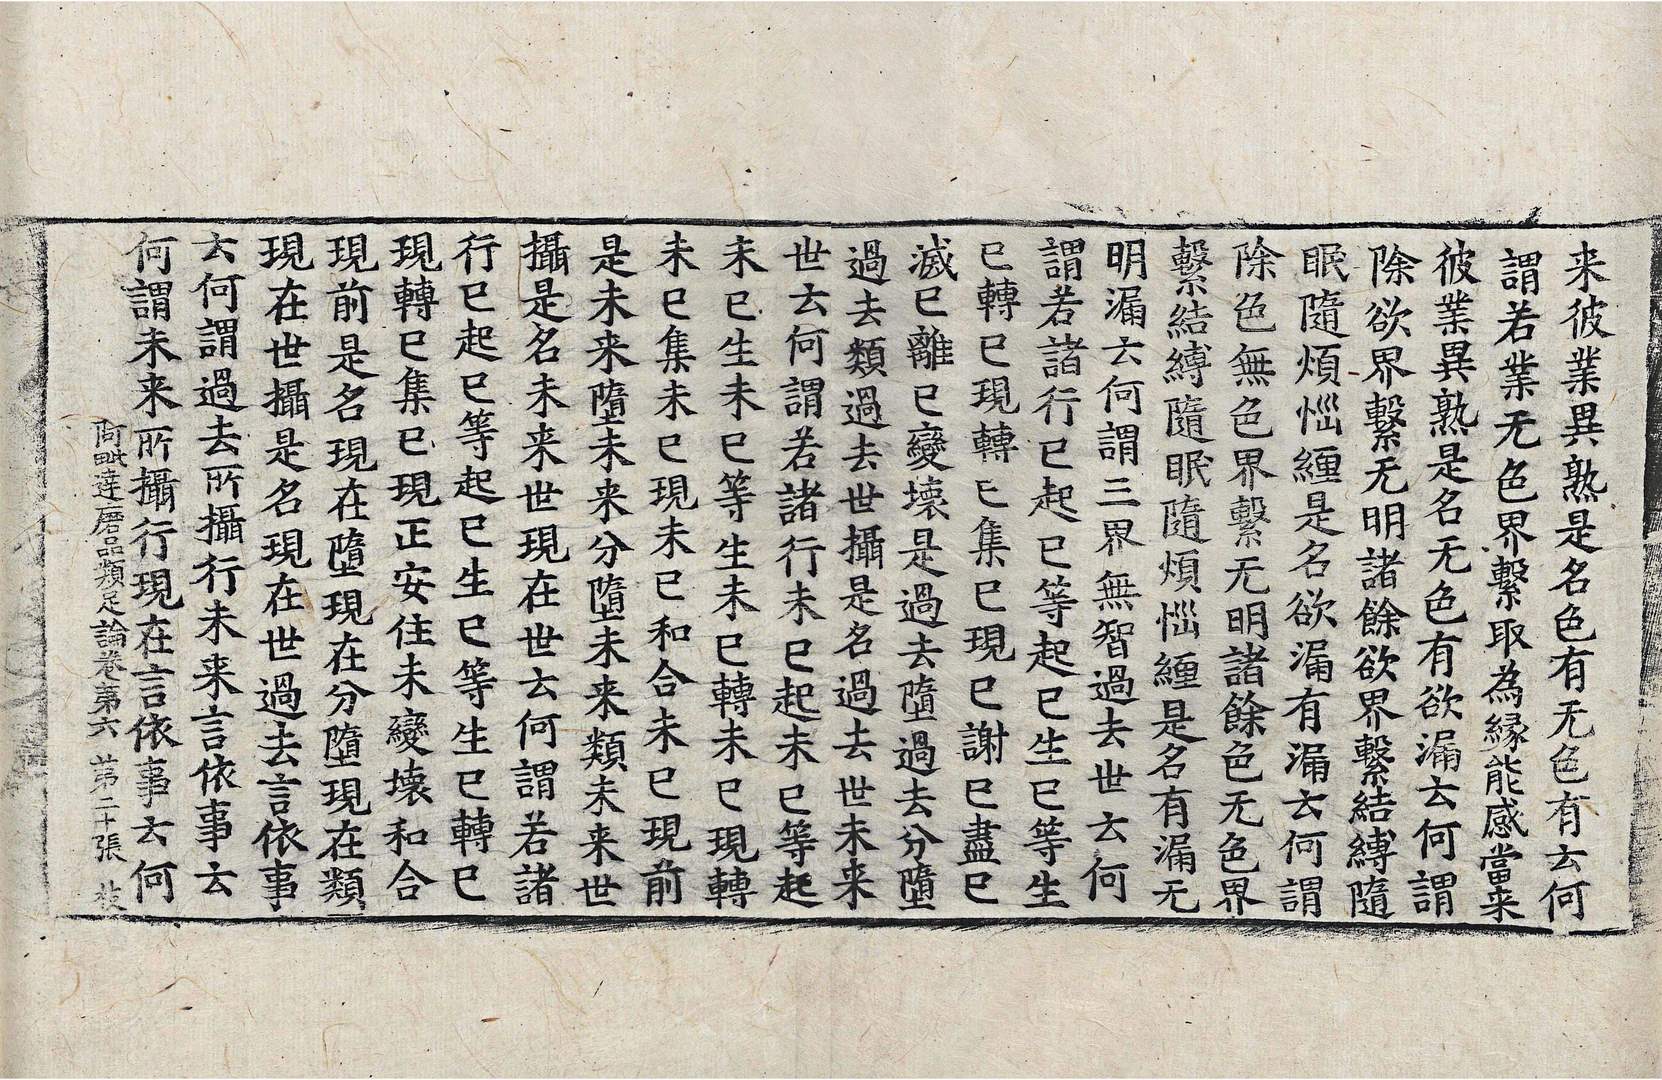 来彼業異熟是名色有无色有云何
謂若業无色界繫取為緣能感當来
彼業異熟是名无色有欲漏云何謂
除欲界繫无明諸餘欲界繫結縛隨
眠隨煩惱纏是名欲漏有漏云何謂
除色無色界繫无明諸餘色无色界
繫結縛隨眠隨煩惱纏是名有漏无
明漏云何謂三界無智過去世云何
謂若諸行已起已等起已生已等生
已轉已現轉已集已現已謝已盡已
滅已離已變壞是過去墮過去分墮
過去類過去世攝是名過去世未来
世云何謂若諸行未已起未已等起
未已生未已等生未已轉未已現轉
未已集未已現未已和合未已現前
是未来墮未来分墮未来類未来世
攝是名未来世現在世云何謂若諸
行已起已等起已生已等生已轉已
現轉已集已現正安住未變壞和合
現前是名現在墮現在分墮現在類
現在世攝是名現在世過去言依事
云何謂過去所攝行未来言依事云
何謂未来所攝行現在言依事云何
阿毗達磨品類足論卷第六 第二十張